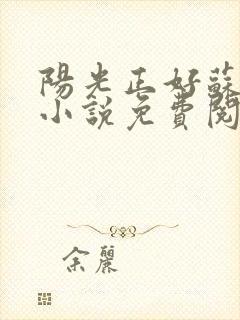 陽光正好蘇
小說免費閱
余麗